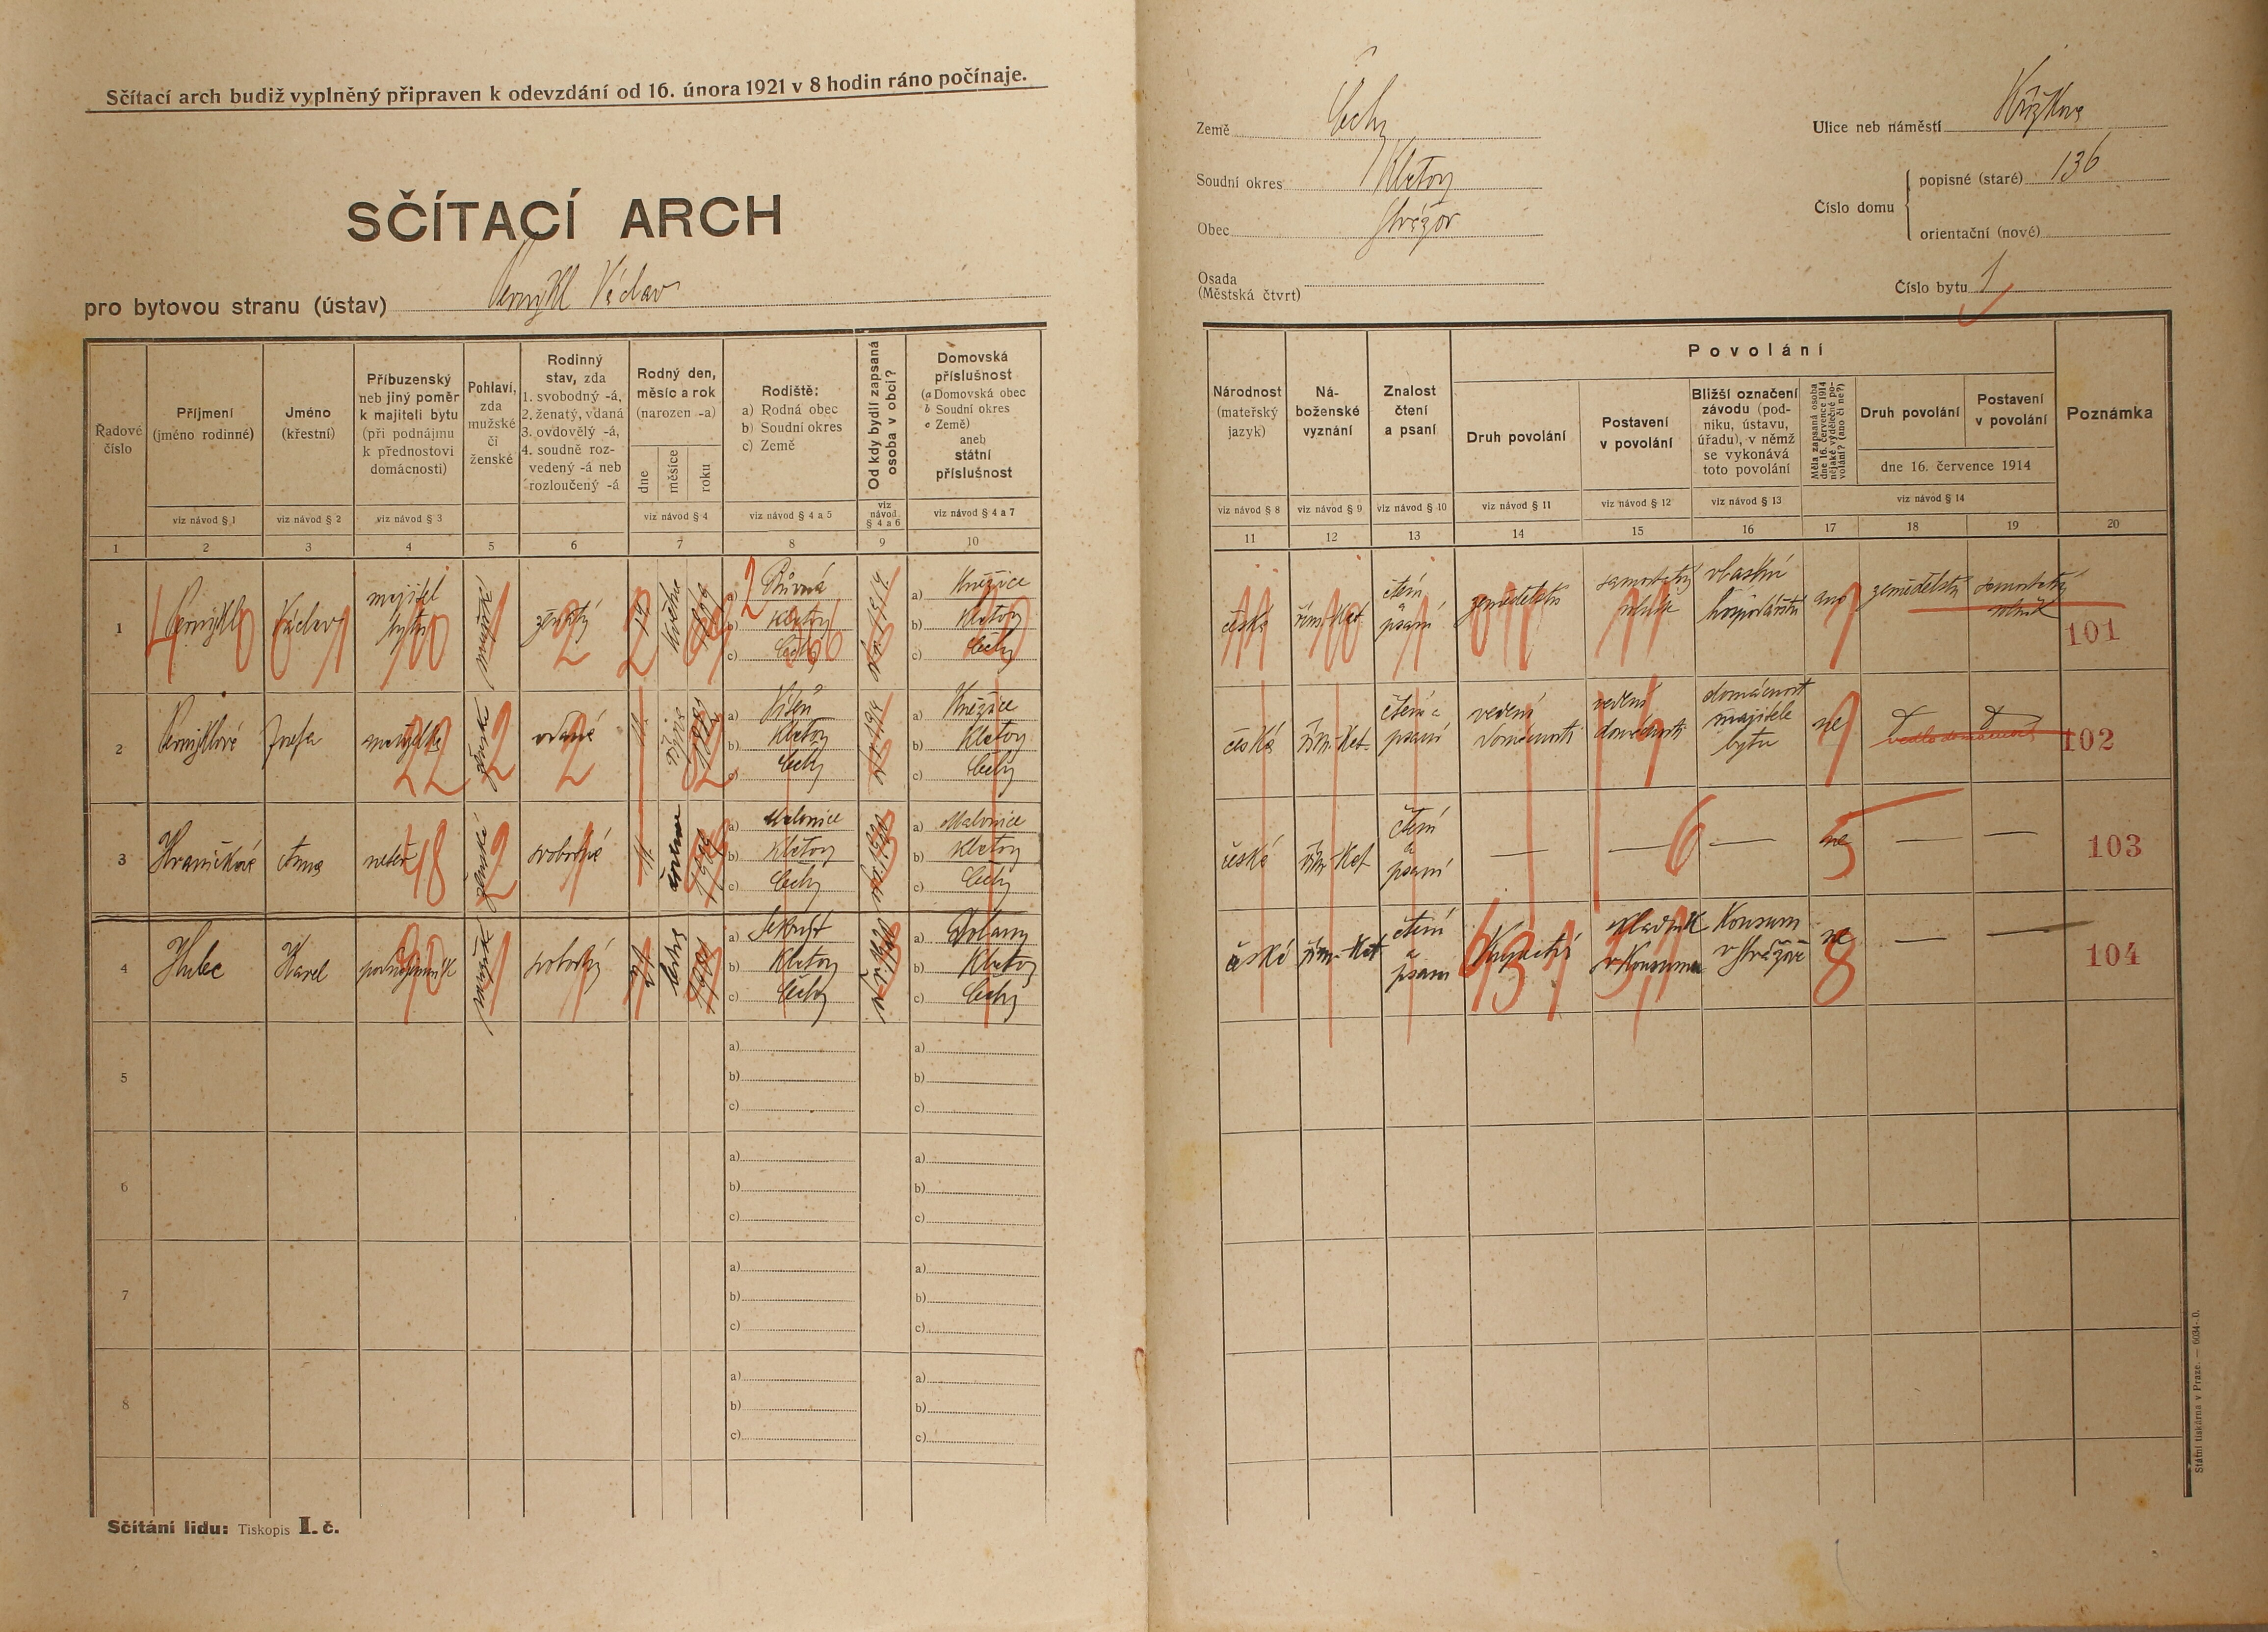 Sčítací arch budiž vyplněný připraven k odevzdání od 16. února 1921 v 8 hodin ráno počínaje.
SČÍTACÍ ARCH
pro bytovou stranu (ústav) Václav
Země Čechy
Soudní okres Klatovy
Obec Strážov
Osada
(Městská čtvrť)
Ulice neb náměstí
Číslo domu
popisné (staré) 136
orientační (nové)
Číslo bytu 1
Řadové číslo
Příjmení
(jméno rodinné)
viz návod § 1
Jméno
(křestní)
viz návod § 2
Příbuzenský
neb jiný poměr
k majiteli bytu
(při podnájmu
k přednostovi
domácnosti)
viz návod § 3
Pohlaví,
zda
mužské
či
ženské
Rodinný
stav, zda
1. svobodný -á,
2. ženatý, vdaná
3. ovdovělý -á,
4. soudně roz-
vedený -á neb
rozloučený -á
Rodný den,
měsíc a rok
(narozen -a)
dne
měsíce
roku
viz návod § 4
Rodiště:
a) Rodná obec
b) Soudní okres
c) Země
viz návod § 4 a 5
Od kdy bydlí zapsaná
osoba v obci?
viz
návod
§ 4 a 6
Domovská
příslušnost
(a Domovská obec
b Soudní okres
c Země)
aneb
státní
příslušnost
viz návod § 4 a 7
1 2 3 4 5 6 7 8 9 10
Národnost
(mateřský
jazyk)
viz návod § 8
Ná-
boženské
vyznání
viz návod § 9
Znalost
čtení
a psaní
viz návod § 10
Povolání
Druh povolání
viz návod § 11
Postavení
v povolání
viz návod § 12
Bližší označení
závodu (pod-
niku, ústavu,
úřadu), v němž
se vykonává
toto povolání
viz návod § 13
Měla zapsaná osoba
dne 16. července 1914
nějaké výdělečné po-
volání? (ano či ne?)
Druh povolání
Postavení
v povolání
dne 16. července 1914
viz návod § 14
Poznámka
11 12 13 14 15 16 17 18 19 20
1 Václav majitel bytu mužské ženatý května
a)
b) Klatovy
c) Čechy
a) Kněžice
b) Klatovy
c) Čechy
česká řím-kat čtení a psaní zemědělství samostatný vlastní hospodářství ano zemědělství samostatný rolník 101
2 Josefa manželka ženské vdaná
a)
b) Klatovy
c) Čechy
od 1914
a) Kněžice
b) Klatovy
c) Čechy
česká řím-kat čtení a psaní vedení domácnosti vedení domácnosti domácnost majitele bytu ne 102
3 Hraničková Anna neteř ženské svobodná 11.
a) Malonice
b) Klatovy
c) Čechy
a) Malonice
b) Klatovy
c) Čechy
česká řím-kat čtení a psaní — — — ne — — 103
4 Hulec Karel podnájemník mužské svobodný
a)
b) Klatovy
c) Čechy
a) Dolany
b) Klatovy
c) Čechy
české řím-kat čtení a psaní Kupectví skladník v Konsumu Konsum v Strážově ne — — 104
5
a)
b)
c)
a)
b)
c)
6
a)
b)
c)
a)
b)
c)
7
a)
b)
c)
a)
b)
c)
8
a)
b)
c)
a)
b)
c)
Sčítání lidu: Tiskopis I. č.
Státní tiskárna v Praze. — 6034-0.